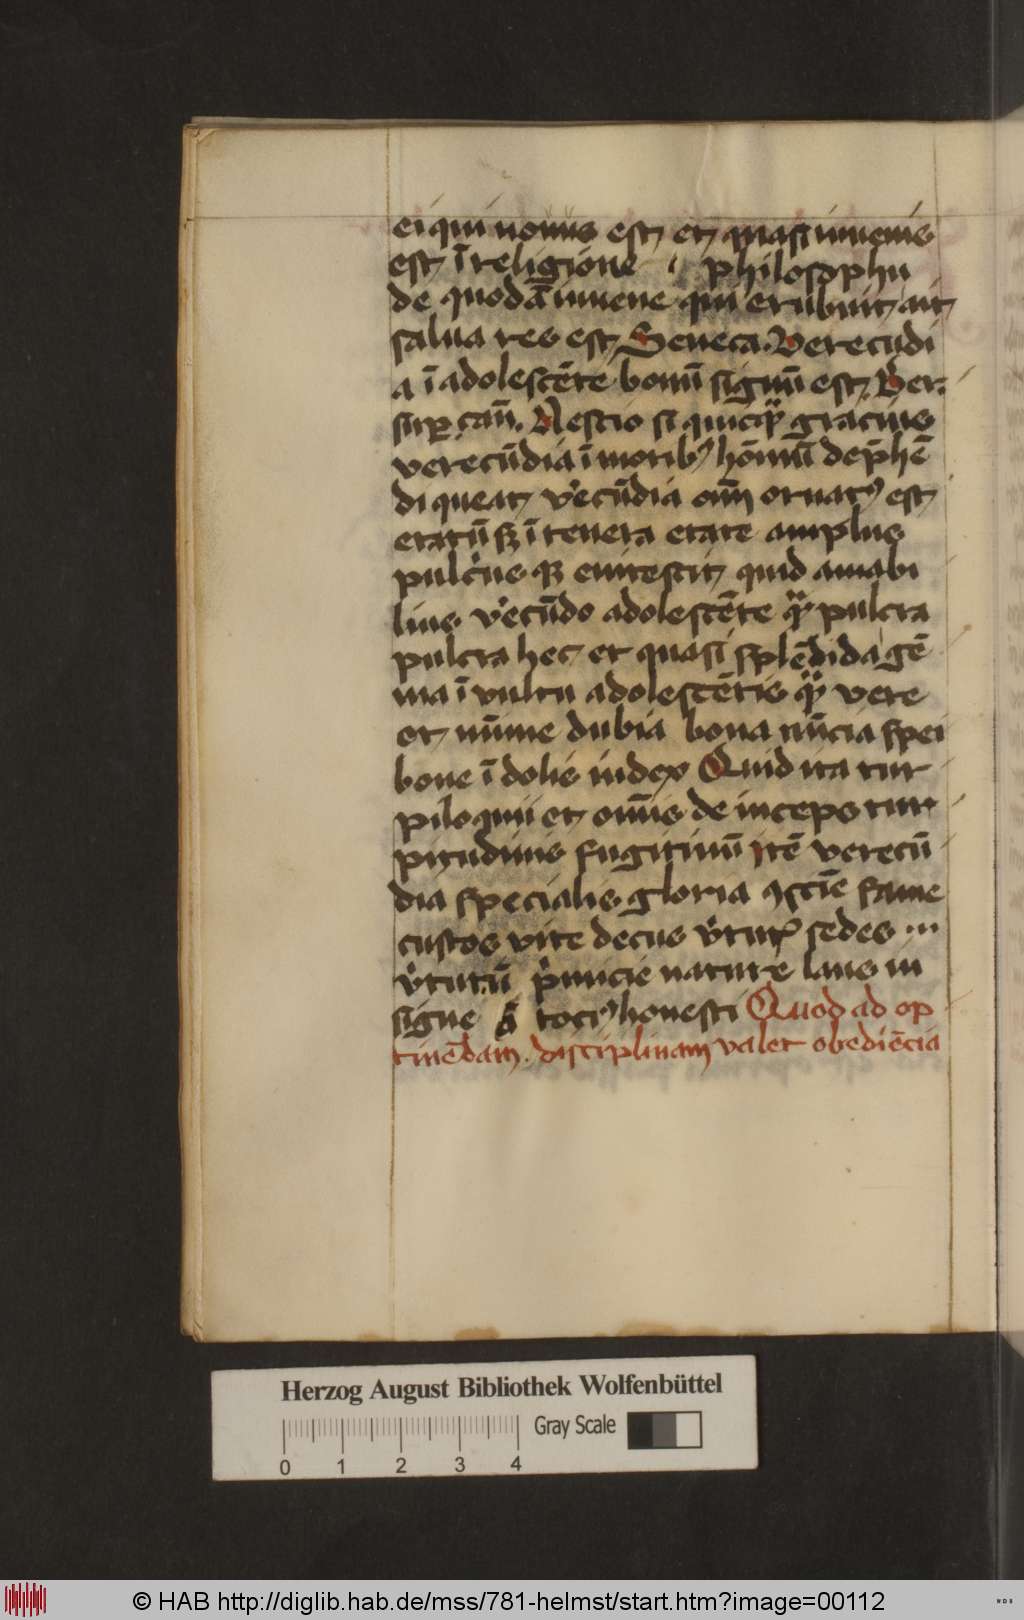 ei qui nouus est et quasi iuuenis
est ī religione philosophu
de quodā iuuene qui erubuit ait
salua res est Seneca. Verecūdi
a ī adolescēte bonū signū est. Ber:
sup cāN. Nescio si quicq̄ gracius
verecūdia ī moribꝰ hōīnū dep̄hē
di queat v̾ecūdia om̄ ornatꝰ est
etatū sꝫ ī tenera etate amplius
pulc̾ius qꝫ enitescit quid amabi
lius v̾ecūdo adolescēte q̄ pulcra
pulcra hec et quasi splēdida gē
ma ī vultu adolescētis q̄ vere
et mīme dubia bona nūcia spei
bone ī dolis index Quid ita tur
piloquii et om̄is de inceps tur
pitudinis fugitiuū Itē verecū
dia specialis gloria ꝯsciē fame
custos vite decus v̾tutꝝ sedes ...
v̾tutū p̾micie nature laus in
signe tociꝰ honesti Quod ad op
tinēdam disciplinam valet obediēcia
Herzog August Bibliothek Wolfenbüttel
Gray Scale
0 1 2 3 4
© HAB http://diglib.hab.de/mss/781-helmst/start.htm?image=00112